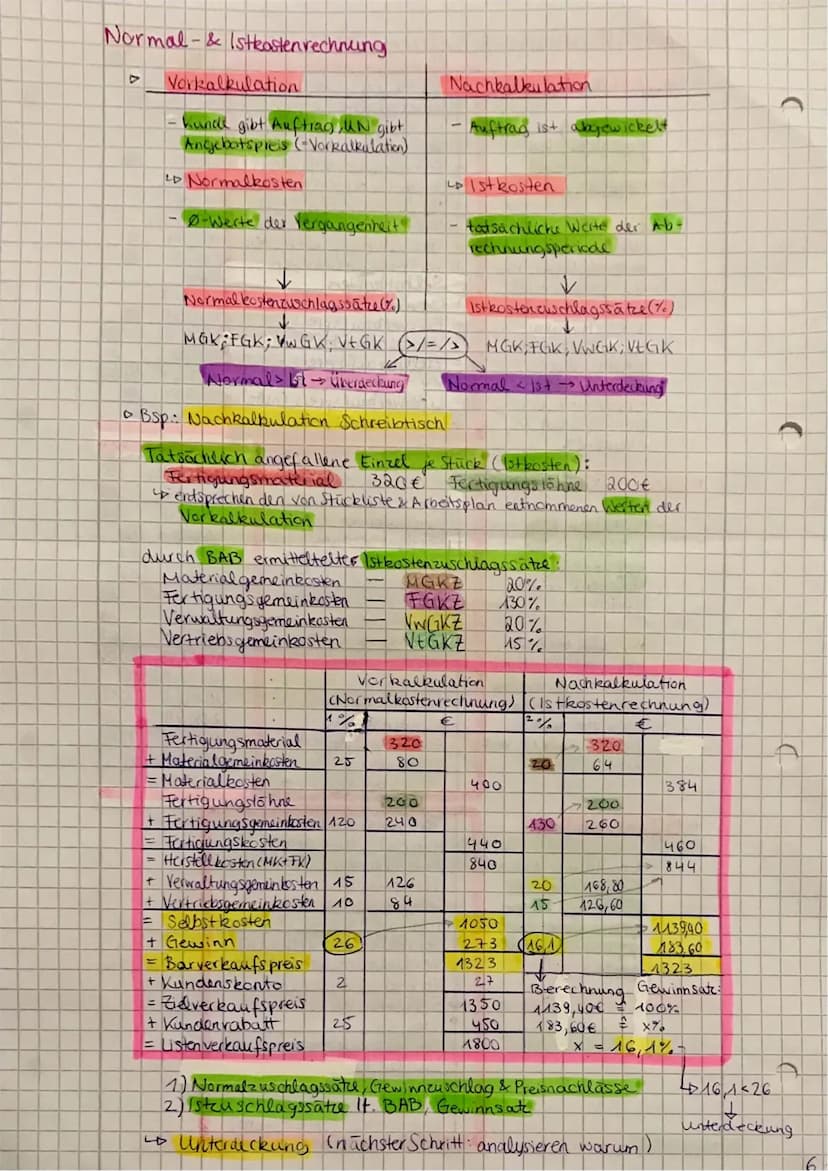 Normal- & Istkostenrechnung
▷ Vorkalkulation Nachkalkulation
- Kunde gibt Auftrag, UN gibt
Angebotspreis (=Vorkalkulation)
- Auftrag ist abgewickelt
↳ Normalkosten
↳ Istkosten
- Ø-Werte der Vergangenheit
- tatsächliche Werte der Ab-
rechnungsperiode
↓ ↓
Normalkostenzuschlagssätze (%) Istkostenzuschlagssätze (%)
↓ ↓
MGK; FGK; VwGK; VtGK >/=/> MGK, FGK, VwGK, VtGK
Normal > Ist → Überdeckung Normal < Ist → Unterdeckung
▷ Bsp.: Nachkalkulation Schreibtisch
Tatsächlich angefallene Einzel je Stück (Istkosten):
Fertigungsmaterial 320€ Fertigungslöhne 200€
↳ entsprechen den von Stückliste & Arbeitsplan entnommenen Werten der
Vorkalkulation
durch BAB ermittelter Istkostenzuschlagssätze:
Materialgemeinkosten — MGKZ 20%
Fertigungsgemeinkosten — FGKZ 130%
Verwaltungsgemeinkosten — VwGKZ 20%
Vertriebsgemeinkosten — VtGKZ 15%
Vorkalkulation Nachkalkulation
(Normalkostenrechnung) (Istkostenrechnung)
1 % € 2 % €
Fertigungsmaterial 320 320
+ Materialgemeinkosten 25 80 20 64
= Materialkosten 400 384
Fertigungslöhne 200 200
+ Fertigungsgemeinkosten 120 240 130 260
= Fertigungskosten 440 460
= Herstellkosten (MK+FK) 840 844
+ Verwaltungsgemeinkosten 15 126 20 168,80
+ Vertriebsgemeinkosten 10 84 15 126,60
= Selbstkosten 1050 1139,40
+ Gewinn 26 273 16,1 183,60
= Barverkaufspreis 1323 1323
+ Kundenskonto 2 27 Berechnung Gewinnsatz:
= Zielverkaufspreis 1350 1139,40€ ≙ 100%
+ Kundenrabatt 25 450 183,60€ ≙ x%
= Listenverkaufspreis 1800 x = 16,1%
1) Normalzuschlagssätze, Gewinnzuschlag & Preisnachlässe
↳ 16,1 < 26
2) Istzuschlagssätze lt. BAB, Gewinnsatz
↓
Unterdeckung
↳ Unterdeckung (nächster Schritt: analysieren warum)
6